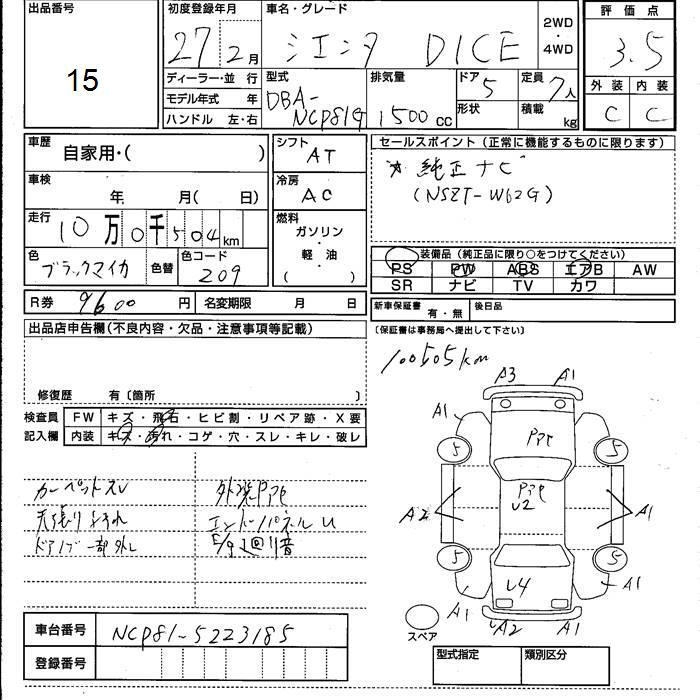 出品番号
15
初度登録年月
27 2月
車名・グレード
シエンタ DICE
2WD
・
4WD
評価点
3.5
外装 内装
C C
ディーラー・並 行
モデル年式 年
ハンドル 左・右
型式
DBA-
NCP81G
排気量
1500cc
ドア
5
形状
定員
7人
積載
kg
車歴
自家用・( )
車検
年 月( 日)
走行
10万0千504km
色
ブラックマイカ
色替
色コード
209
シフト
AT
冷房
AC
燃料
ガソリン
・
軽 油
・
( )
セールスポイント (正常に機能するものに限ります)
純正ナビ
(NSZT-W62G)
装備品 (純正品に限り○をつけてください)
PS PW ABS エアB AW
SR ナビ TV カワ
R券 9600円
名変期限 月 日
新車保証書 有・無
後日品
(保証書は事務局へ提出して下さい)
出品店申告欄(不良内容・欠品・注意事項等記載)
修復歴 有〔箇所 〕
100505km
検査員
記入欄
FW キズ・飛石・ヒビ割・リペア跡・X要
内装 キズ・汚れ・コゲ・穴・スレ・キレ・破レ
カーペットスレ
天張りよごれ
ドアノブ一部外し
外装PPt
エンドパネルU
E/g 回り音
A3 A1
A1
PPt
5 5
PPt
U2
A2 A1
5 5
U4
A1 A1
A2 A1
スペア
車台番号
NCP81-5223185
登録番号
型式指定
類別区分